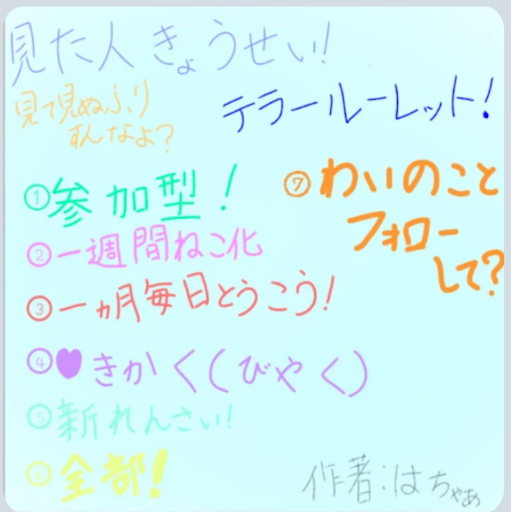 見た人きょうせい!
見て見ぬふり
すんなよ?
テラールーレット!
①参加型!
②一週間ねこ化
③一ヵ月毎日とうこう!
④♥きかく(びやく)
⑤新れんさい!
⑥全部!
⑦わいのこと
フォロー
して?
作者:はちゃあ